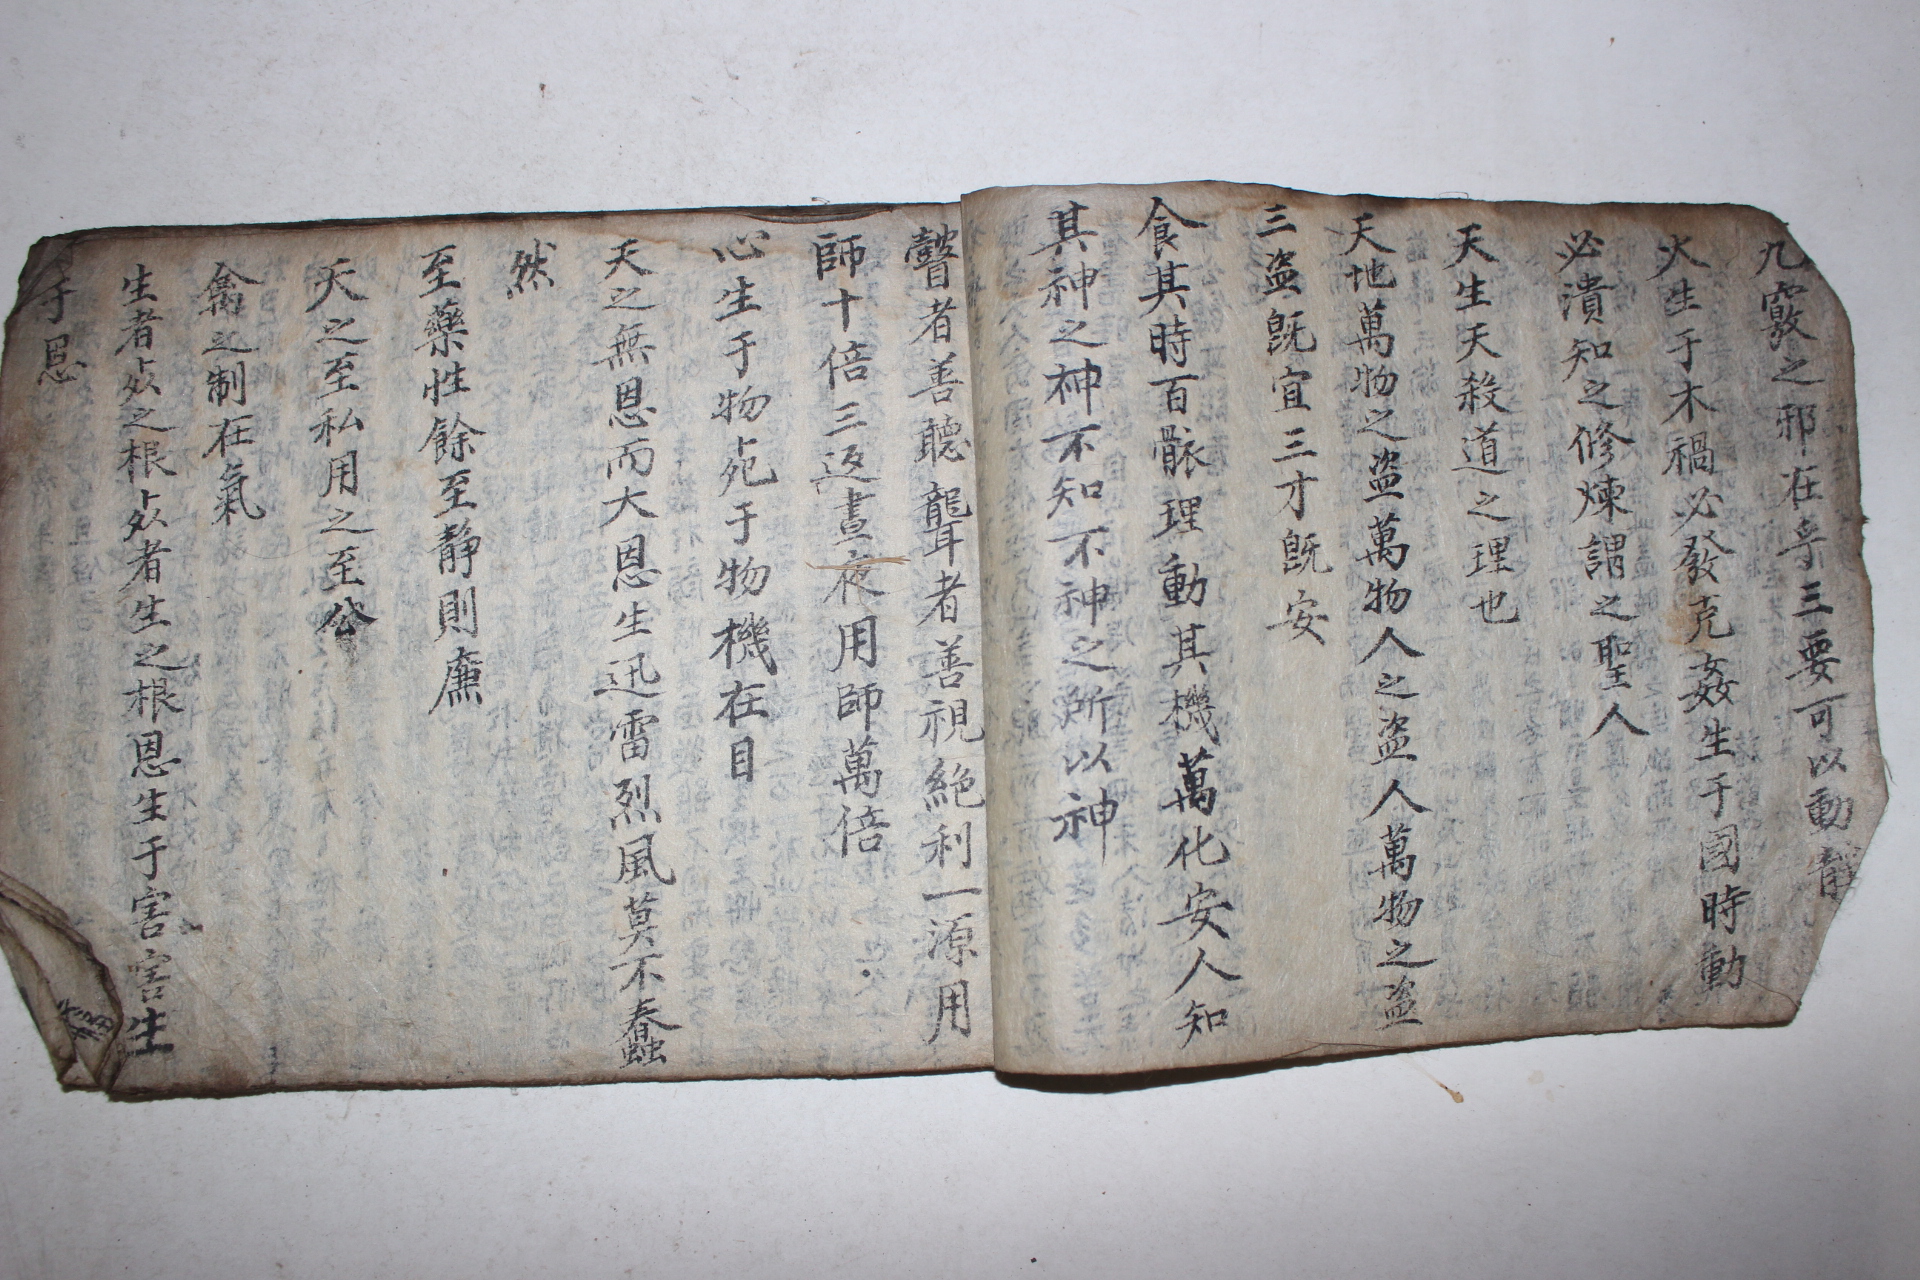 九竅之邪在乎三要可以動靜
火生于木禍必發克姦生于國時動
必潰知之修煉謂之聖人
天生天殺道之理也
天地萬物之盗萬物人之盗人萬物之盗
三盗既宜三才既安
食其時百骸理動其機萬化安人知
其神之神不知不神之所以神
瞽者善聽聾者善視絶利一源用
師十倍三返晝夜用師萬倍
心生于物死于物機在目
天之無恩而大恩生迅雷烈風莫不蠢
然
至藥性餘至静則廉
天之至私用之至公
禽之制在氣
生者死之根死者生之根恩生于害害生
于恩